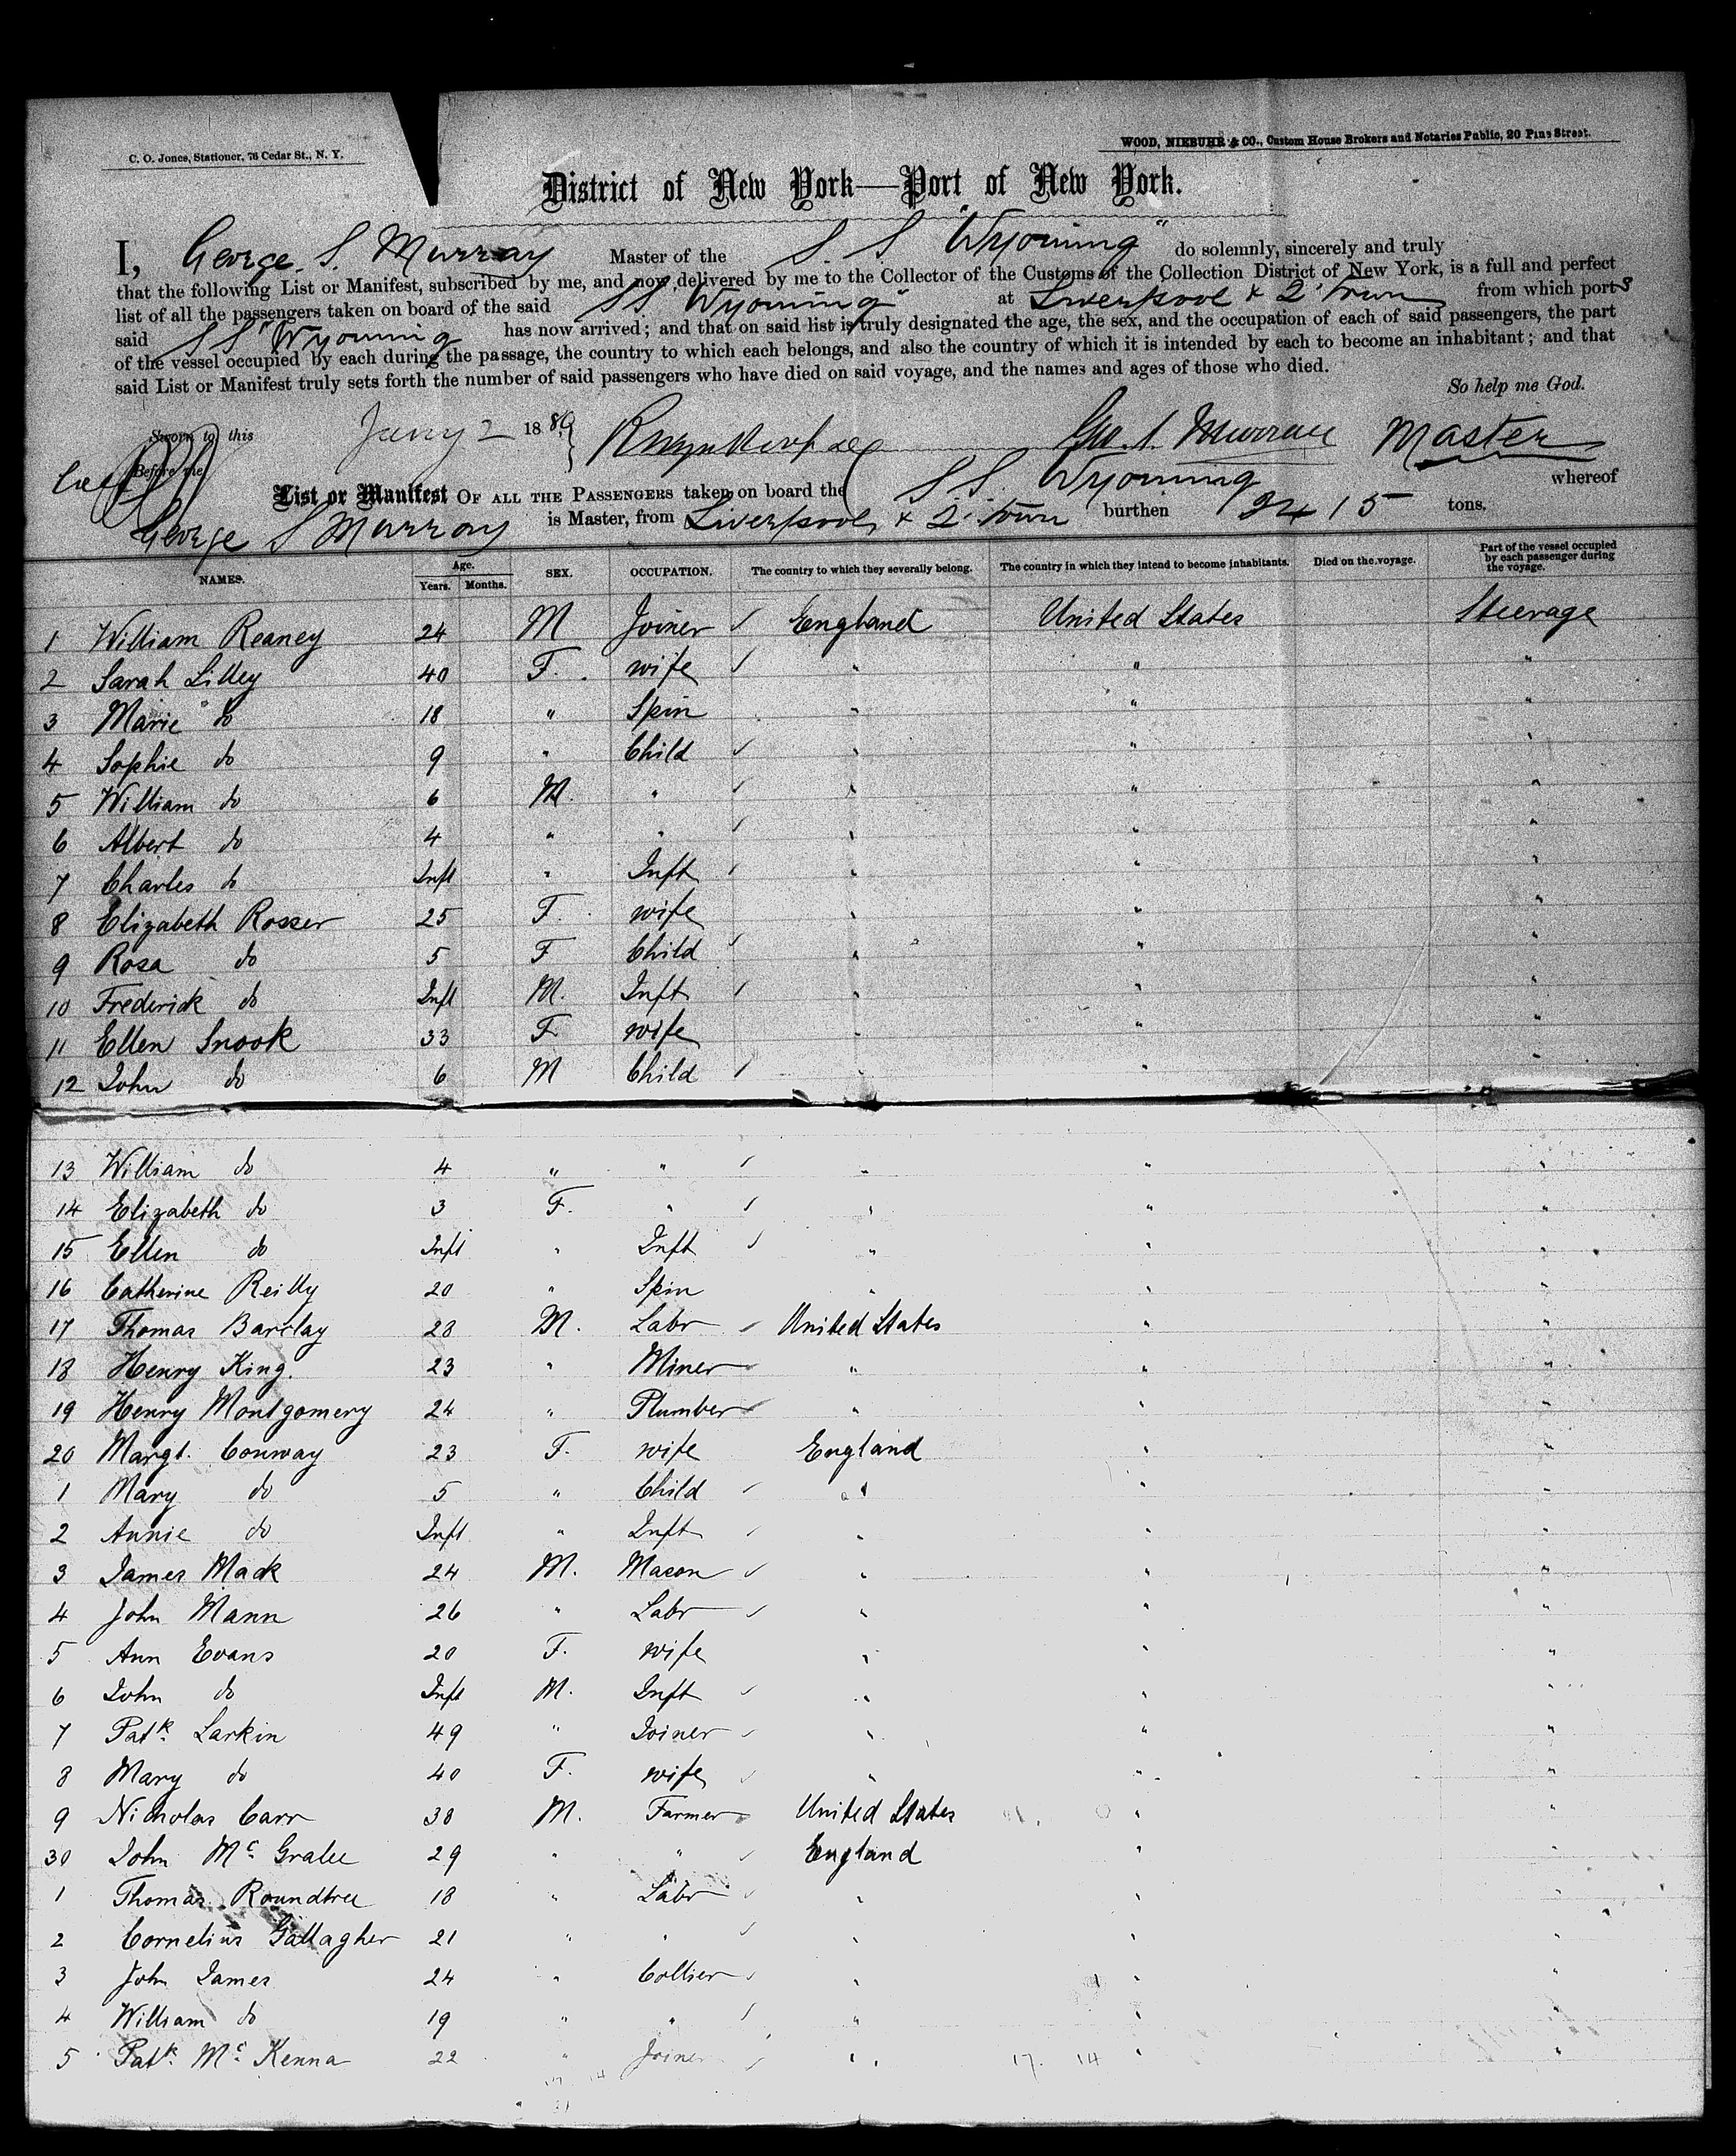 C. O. Jones, Stationer, 76 Cedar St., N. Y.
WOOD, NIEBUHR & CO., Custom House Brokers and Notaries Public, 20 Pine Street.
District of New York—Port of New York.
I, George. S. Murray Master of the S. S. "Wyoming" do solemnly, sincerely and truly
that the following List or Manifest, subscribed by me, and now delivered by me to the Collector of the Customs of the Collection District of New York, is a full and perfect
list of all the passengers taken on board of the said SS "Wyoming" at Liverpool & Q'town from which ports
said SS "Wyoming has now arrived; and that on said list is truly designated the age, the sex, and the occupation of each of said passengers, the part
of the vessel occupied by each during the passage, the country to which each belongs, and also the country of which it is intended by each to become an inhabitant; and that
said List or Manifest truly sets forth the number of said passengers who have died on said voyage, and the names and ages of those who died.
So help me God.
Sworn to this Jany 2 1889 Geo. S. Murray Master
Before me
List or Manifest OF ALL THE PASSENGERS taken on board the S.S. Wyoming whereof
George S Murray is Master, from Liverpool & Q'town burthen 2415 tons.
NAMES. Age. Years. Months. SEX. OCCUPATION. The country to which they severally belong. The country in which they intend to become inhabitants. Died on the voyage. Part of the vessel occupied by each passenger during the voyage.
1 William Reaney 24 M Joiner England United States Steerage
2 Sarah Lilley 40 F. wife " " "
3 Marie do 18 " Spin " " "
4 Sophie do 9 " Child " " "
5 William do 6 M. " " " "
6 Albert do 4 " " " " "
7 Charles do Inft " Inft " " "
8 Elizabeth Rosser 25 F. wife " " "
9 Rosa do 5 F Child " " "
10 Frederick do Inft M. Inft " " "
11 Ellen Snook 33 F wife " " "
12 John do 6 M Child " " "
13 William do 4 " " " " "
14 Elizabeth do 3 F. " " " "
15 Ellen do Inft " Inft " " "
16 Catherine Reilly 20 " Spin " " "
17 Thomas Barclay 28 M. Labr United States " "
18 Henry King. 23 " Miner " " "
19 Henry Montgomery 24 " Plumber " " "
20 Margt. Conway 23 F. wife England " "
1 Mary do 5 " Child " " "
2 Annie do Inft " Inft " " "
3 James Mack 24 M. Mason " " "
4 John Mann 26 " Labr " " "
5 Ann Evans 20 F. wife " " "
6 John do Inft M. Inft " " "
7 Patk. Larkin 49 " Joiner " " "
8 Mary do 40 F. wife " " "
9 Nicholas Carr 38 M. Farmer United States " "
30 John Mc Gralee 29 " " England " "
1 Thomas Roundtree 18 " Labr " " "
2 Cornelius Gallagher 21 " " " " "
3 John James 24 " Collier " " "
4 William do 19 " " " " "
5 Patk. Mc Kenna 22 " Joiner " 17. 14 " "